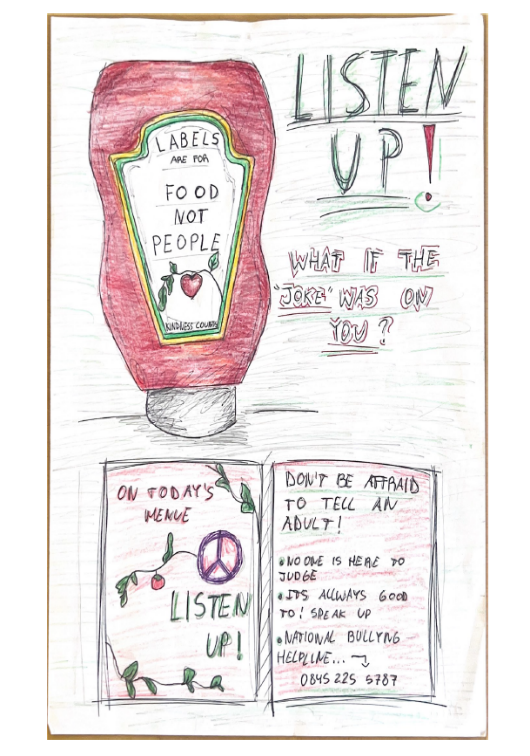 LISTEN
UP!
LABELS
ARE FOR
FOOD
NOT
PEOPLE
KINDNESS COUNTS
WHAT IF THE
"JOKE" WAS ON
YOU?
ON TODAY'S
MENUE
LISTEN
UP!
DON'T BE AFFRAID
TO TELL AN
ADULT!
• NO ONE IS HERE TO
JUDGE
• ITS ALLWAYS GOOD
TO! SPEAK UP
• NATIONAL BULLYNG
HELPLINE...
0845 225 5787